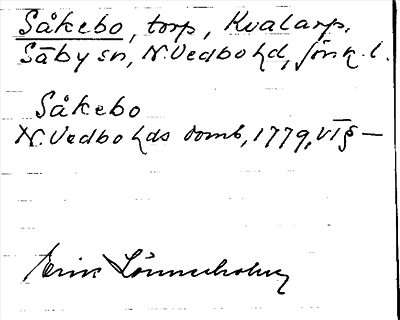 Såkebo, torp, Kvalarp,
Säby sn, N. Vedbo hd, Jönk. l.
Såkebo
N. Vedbo hds domb, 1779, VT § —
Erik Lönnerholm